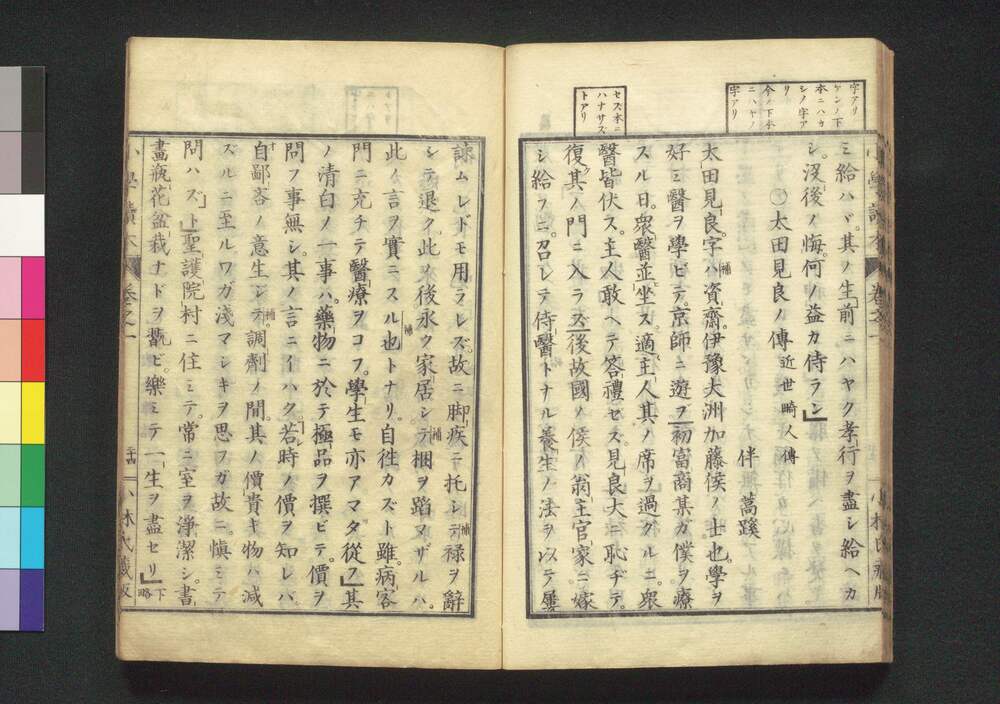 字アリ
ケンノ下
本ニハカ
シノ字ア
リ
今ノ下本
ニハヤノ
字アリ
セズ本ニ
ハナサズ
トアリ
ミ給ハヾ。其ノ生前ニハヤク孝行ヲ盡シ給ヘカ
シ。沒後ノ悔。何ノ益カ侍ラン」
〇太田見良ノ傳 近世畸人傳
伴 蒿蹊
太田見良。字ハ資齋。伊豫大洲加藤侯ノ士也。學ヲ
好ミ醫ヲ學ビテ。京師ニ遊ヲ」初富商某ガ僕ヲ。療
スル日。衆醫並ビ坐ス。適主人其ノ席ヲ過グルニ。衆
醫皆伏ス。主人敢ヘテ答禮セズ。見良大ニ恥ヂテ。
復其ノ門ニ入ラズ」後故國ノ侯ノ翁主。官家ニ嫁
シ給フニ。召レテ侍醫トナル。養生ノ法ヲ以テ屢
諫ムレドモ用ラレズ。故ニ脚疾ニ托シテ祿ヲ辭
シテ退ク。此ノ後永ク家居シテ梱ヲ蹈マザルハ。
此ノ言ヲ實ニスル也トナリ。自徃カズト雖。病客
門ニ充チテ醫療ヲコフ。學生モ亦アマタ從フ」其
ノ清白ノ一事ハ。藥物ニ於テ極品ヲ撰ビテ。價ヲ
問フ事無シ。其ノ言ニイハク。若時ノ價ヲ知レバ
自鄙吝ノ意生シテ。調劑ノ間。其ノ價貴キ物ハ減
ズルニ至ルワガ淺マシキヲ思フガ故ニ。愼ミテ
問ハズ」ト」聖護院村ニ住ミテ。常ニ室ヲ淨潔シ。書
畫瓶花盆栽ナドヲ翫ビ。樂ミテ一生ヲ盡セリ」下略
小學讀本 卷之一
小林氏藏版